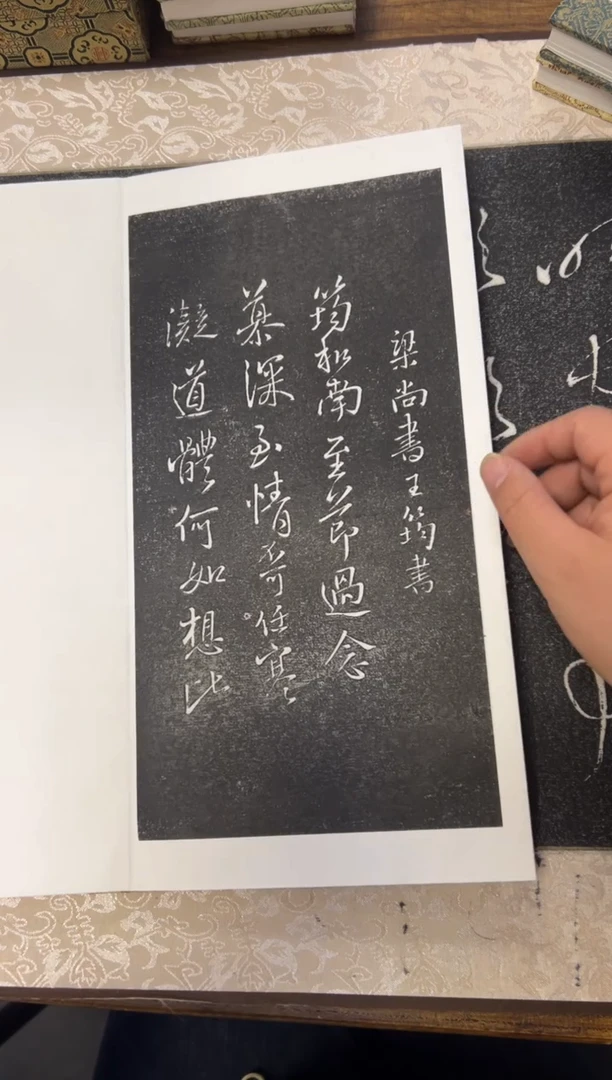 梁尚書王筠書
筠和南至節過念
慕深至情奇任寒
凝道體何如想比